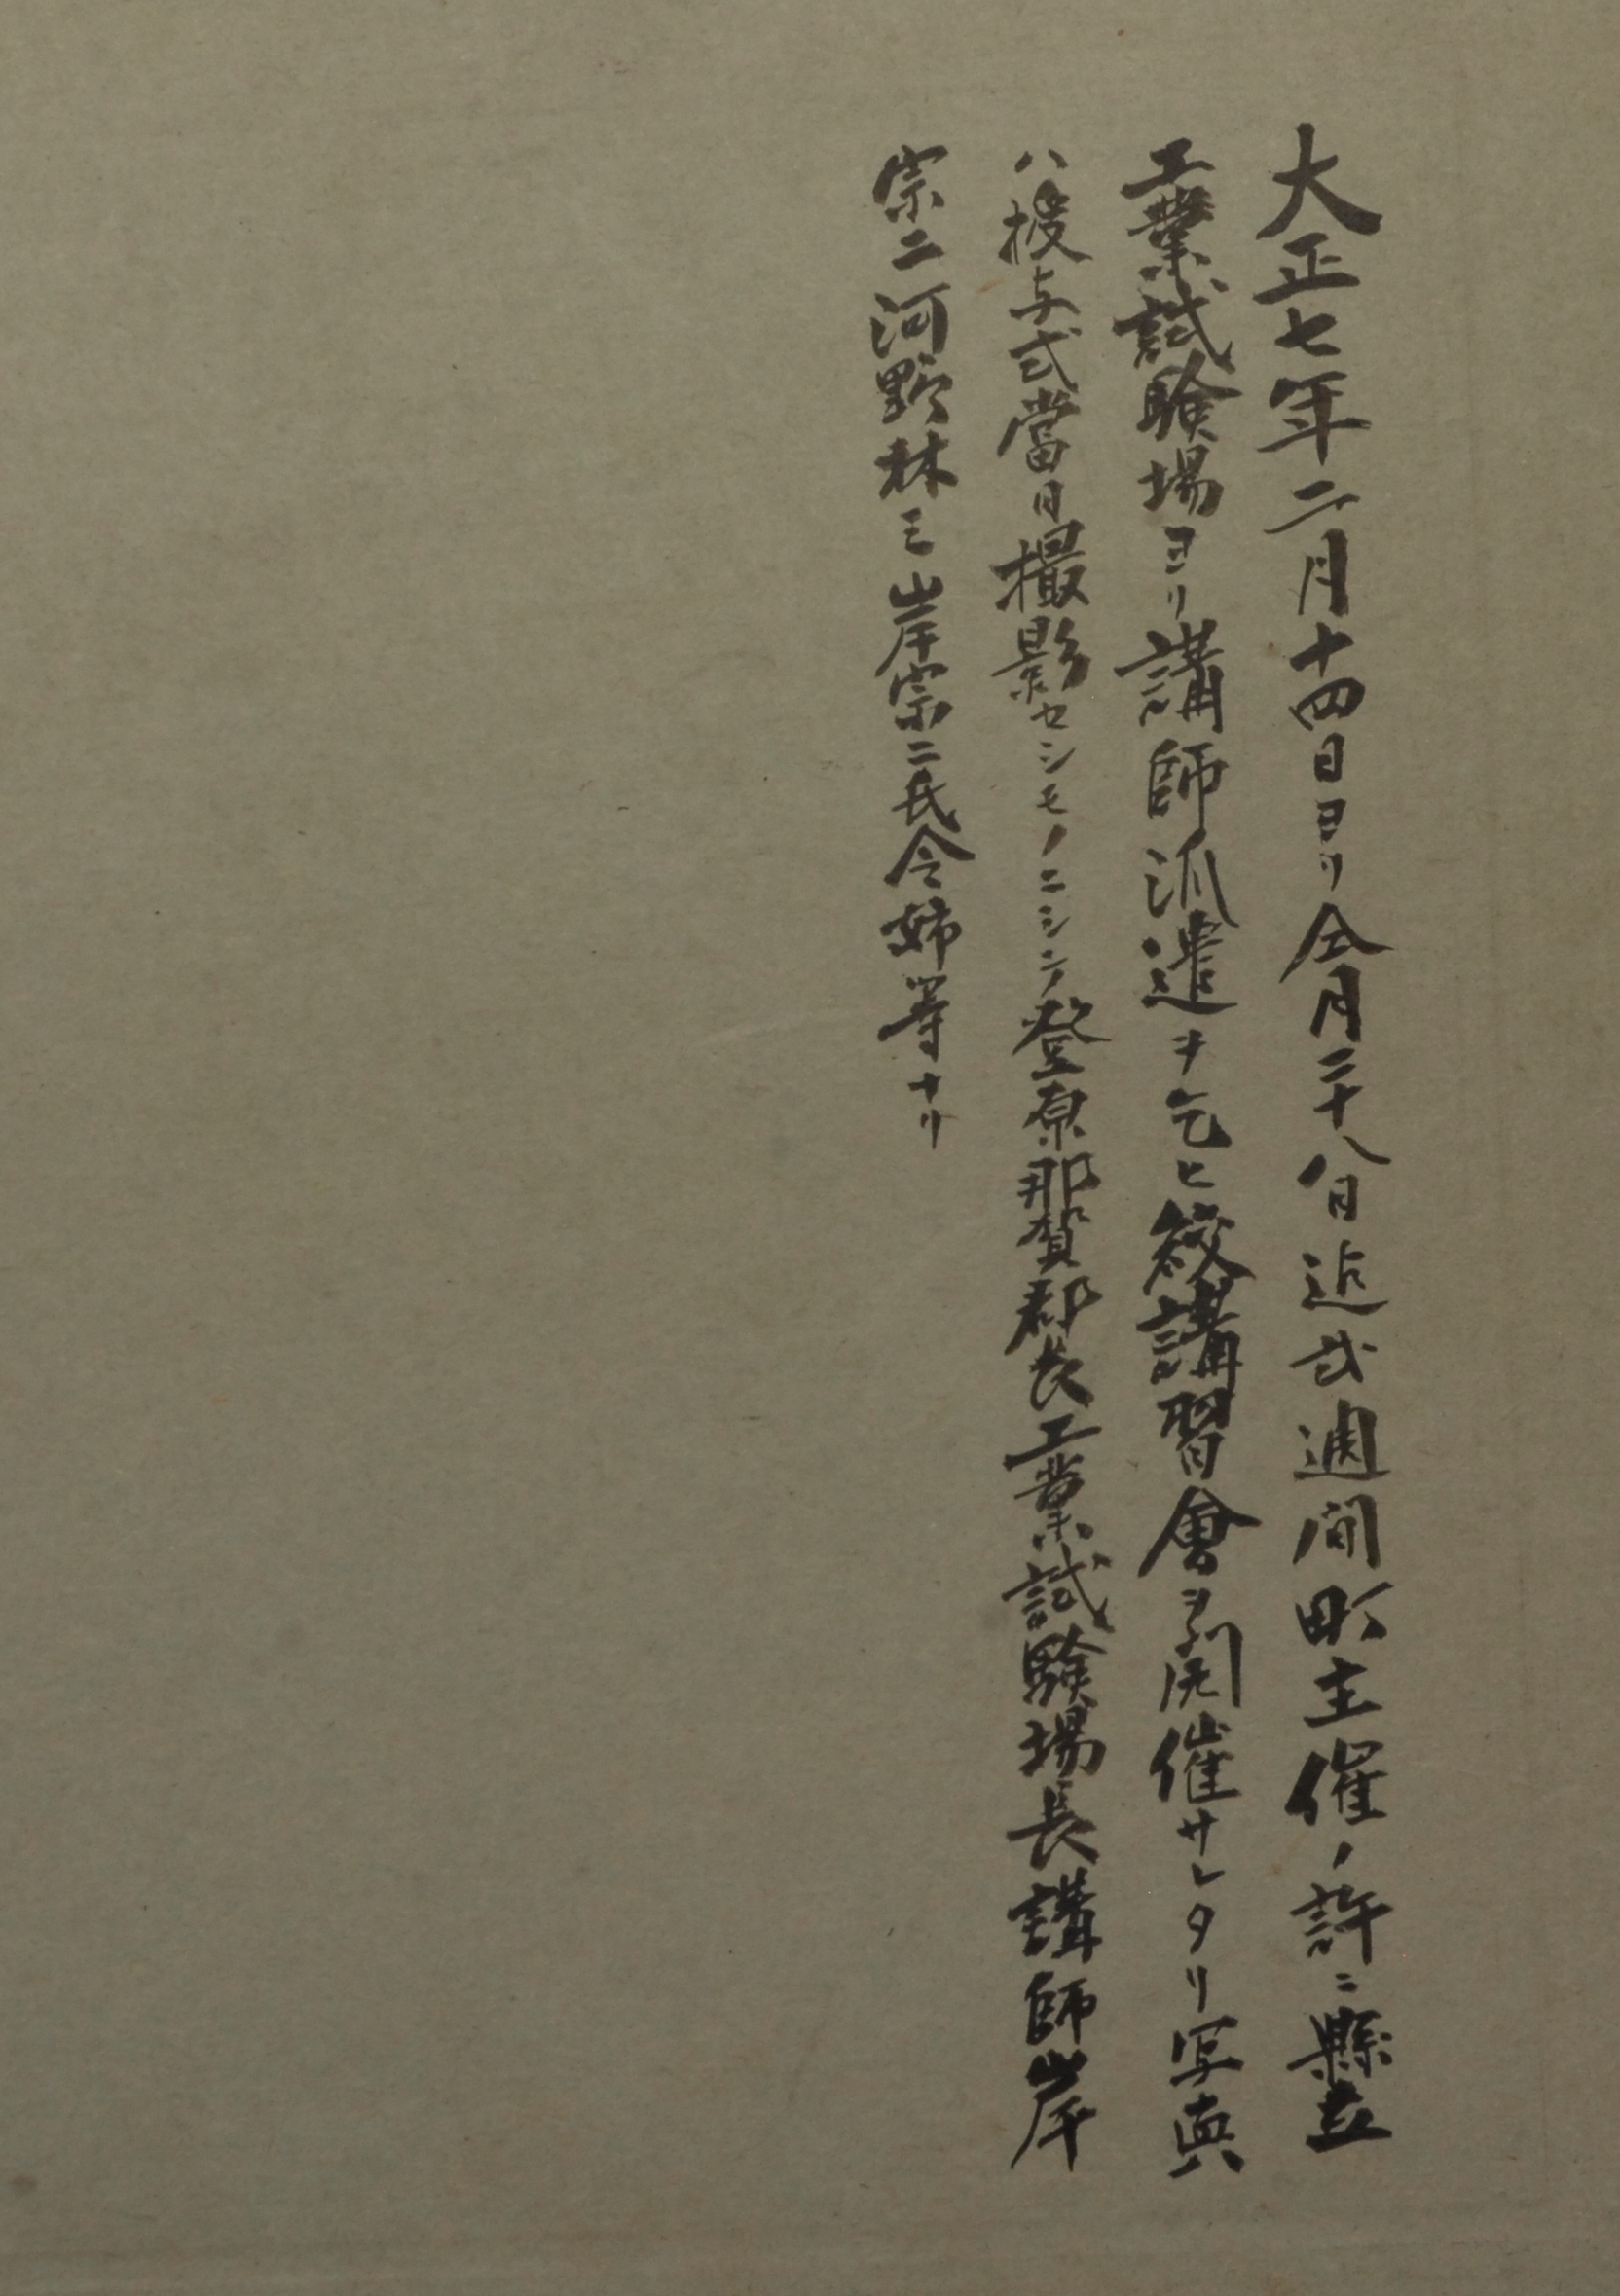 大正七年二月十四日ヨリ仝月二十八日迠弐週間町主催ノ許ニ縣立
工業試験場ヨリ講師派遣ヲ乞ヒ絞講習會ヲ開催サレタリ写真
ハ授与式當日撮影セシモノニシテ登原那賀郡長工業試験場長講師岸
宗二河野林三岸宗二氏令姉等ナリ